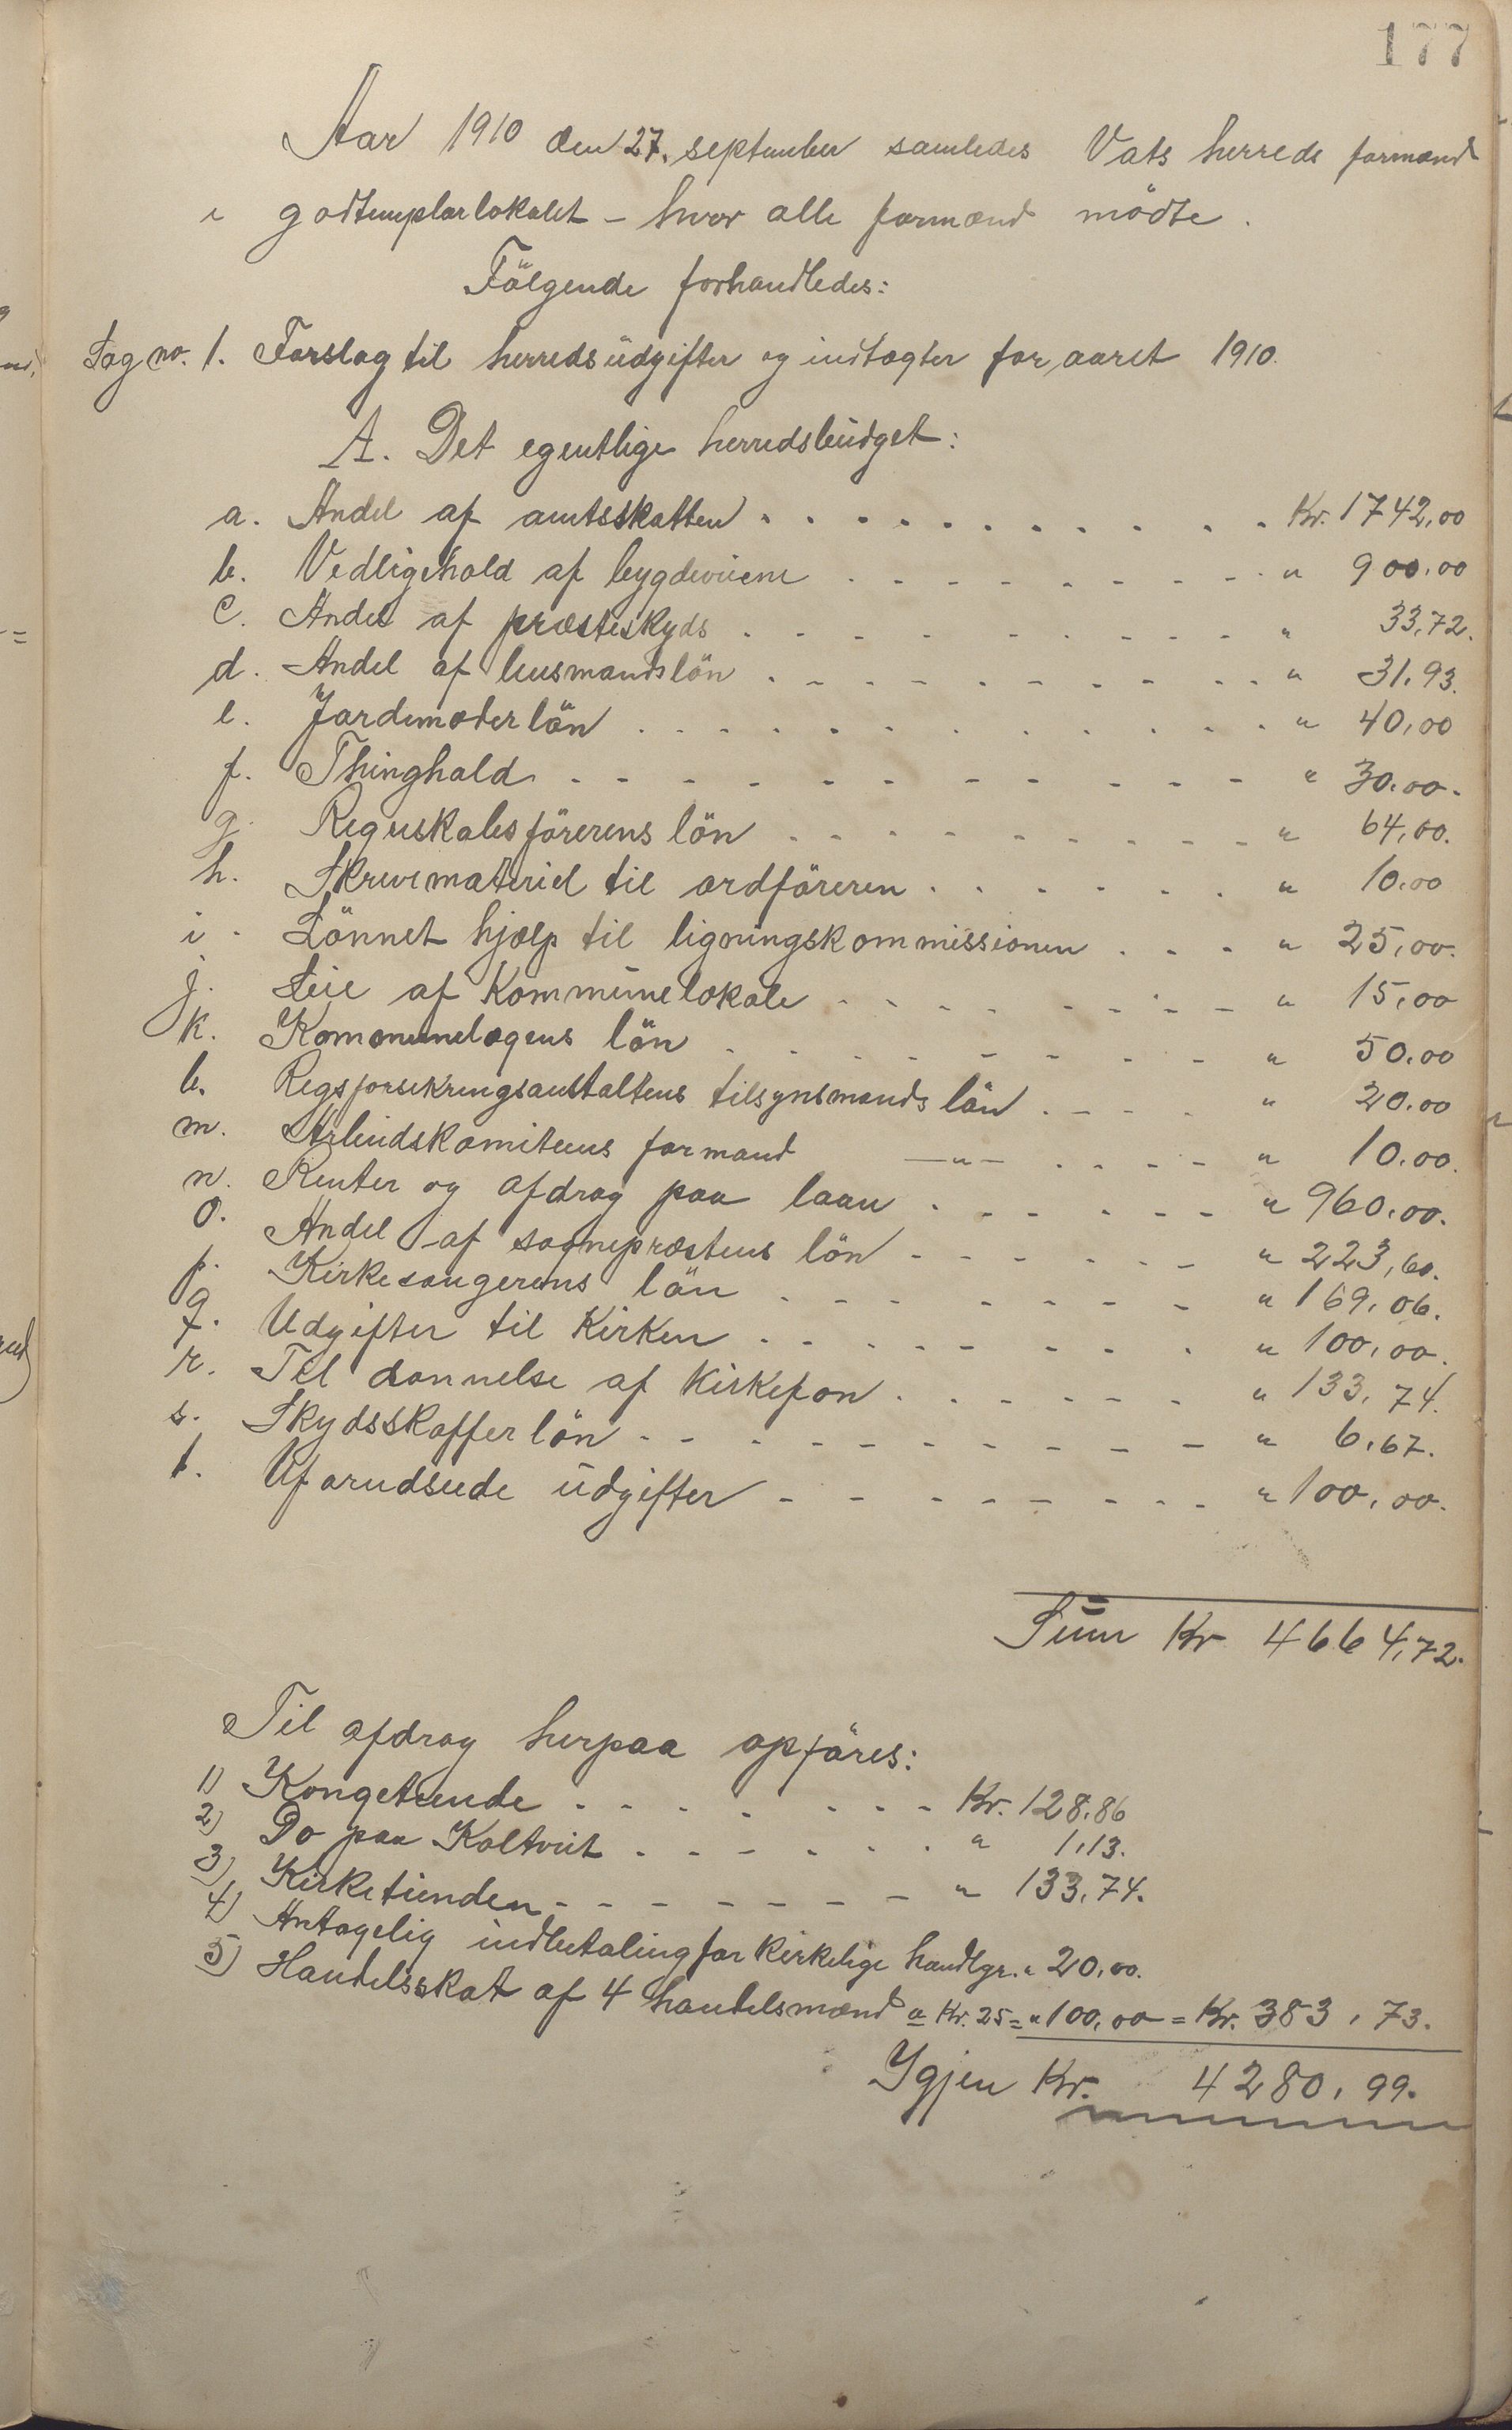 177
Aar 1910 den 27. september samledes Vats herreds formænd
i godtemplarlokalet – hvor alle formænd mödte.
Fölgende forhandledes:
Sag no. 1. Forslag til herredsudgifter og indtægter for aaret 1910.
A. Det egentlige herredsbudget:
a. Andel af amtsskatten . . . . . . . . . . Kr. 1742,00
b. Vedligehold af bygdeveiene . . . . . . . . . " 900,00
c. Andel af præsteskyds . . . . . . . . . " 33,72.
d. Andel af lensmandslön . . . . . . . . . . " 31,93.
e. Jordemoderlön . . . . . . . . . . . " 40,00
f. Thinghold . . . . . . . . . . . . " 30,00.
g. Regnskabsförerens lön . . . . . . . . . " 64,00.
h. Skrivemateriel til ordföreren . . . . . . " 10,00
i. Lönnet hjælp til ligningskommissionen . . . " 25,00.
j. Leie af kommunelokale . . . . . . . . " 15,00
k. Kommunelægens lön . . . . . . . . . " 50,00
l. Rigsforsikringsanstaltens tilsynsmands lön . . . . " 20,00
m. Arbeidskomiteens formand —"— . . . . " 10,00.
n. Renter og afdrag paa laan . . . . . . " 960,00.
o. Andel af sognepræstens lön . . . . . . " 223,60.
p. Kirkesangerens lön . . . . . . . " 169,06.
q. Udgifter til kirken . . . . . . . . " 100,00.
r. Til dannelse af kirkefon . . . . . . " 133,74.
s. Skydsskafferlön . . . . . . . . . . " 6,67.
t. Uforudseede udgifter . . . . . . . . " 100,00.
Sum Kr 4664,72.
Til afdrag herpaa opföres:
1) Kongetiende . . . . . . . . Kr. 128,86
2) Do paa Koltveit . . . . . . " 1,13.
3) Kirketienden . . . . . . . . " 133,74.
4) Antagelig indbetaling for kirkelige handlgr. " 20,00.
5) Handelsskat af 4 handelsmænd a Kr. 25 = " 100,00 = Kr. 383,73.
Igjen Kr. 4280,99.